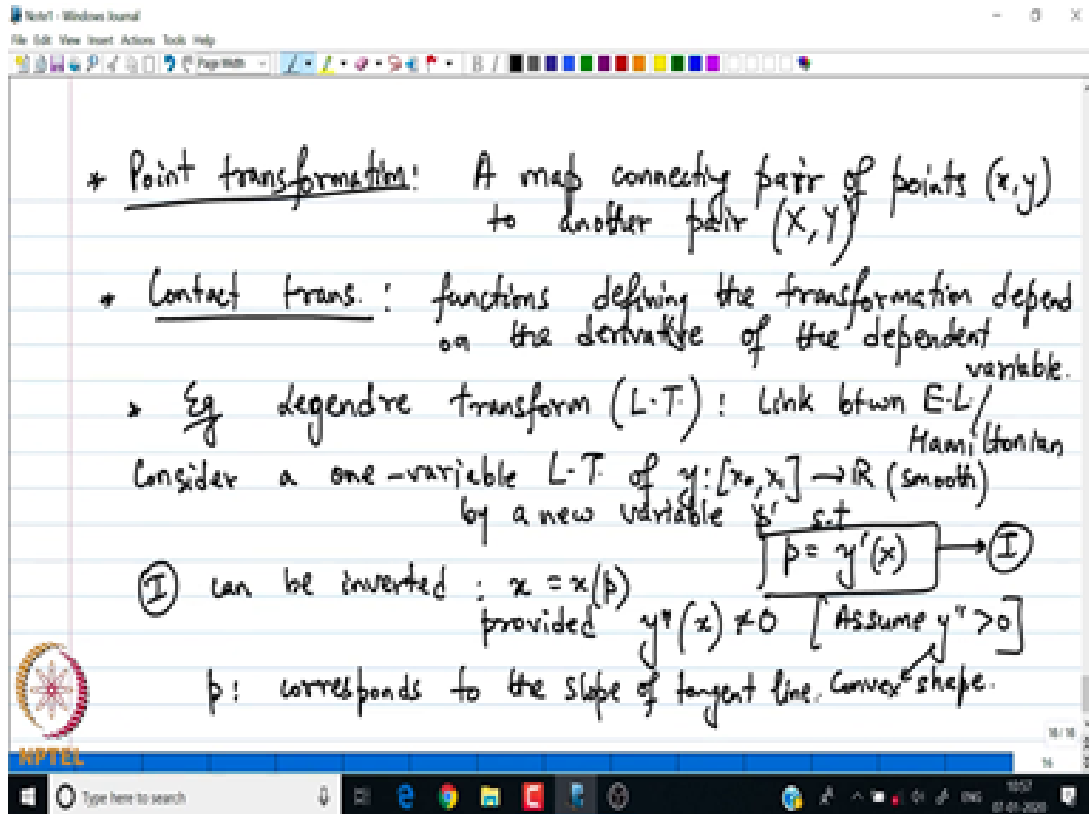 Note1 - Windows Journal
File Edit View Insert Actions Tools Help
Page Width
* Point transformation: A map connecting pair of points (x,y)
to another pair (X,Y)
* Contact trans. : functions defining the transformation depend
on the derivative of the dependent
variable.
* Eg Legendre transform (L.T.) : Link btwn E-L/
Hamiltonian
Consider a one-variable L-T. of y:[x₀,x₁] → R (smooth)
by a new variable s.t
p = y'(x) → I
I can be inverted : x = x(p)
provided y"(x) ≠ 0 [Assume y" > 0]
p: corresponds to the slope of tangent line. Convex shape.
NPTEL
16/16
16
Type here to search
ENG
10:57
07-01-2020